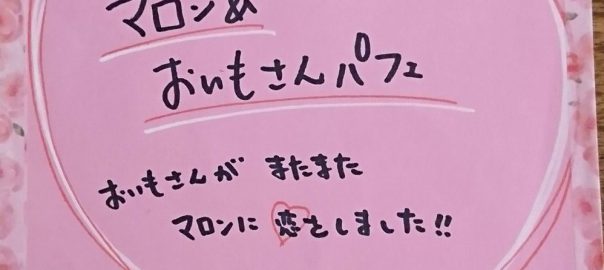 マロン
おいもさんパフェ
おいもさんが またまた
マロンに 恋をしました!!